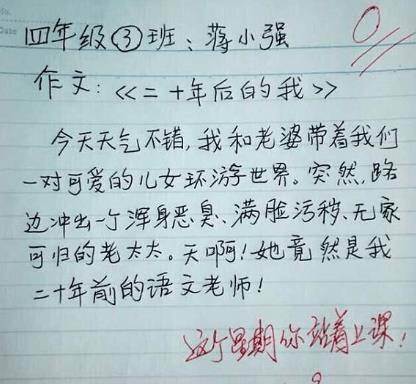 0
四年级③班：蒋小强
作文：《二十年后的我》
今天天气不错，我和老婆带着我们
一对可爱的儿女环游世界。突然，路
边冲出一个浑身恶臭、满脸污秽、无家
可归的老太太。天啊！她竟然是我
二十年前的语文老师！
这个星期你站着上课！